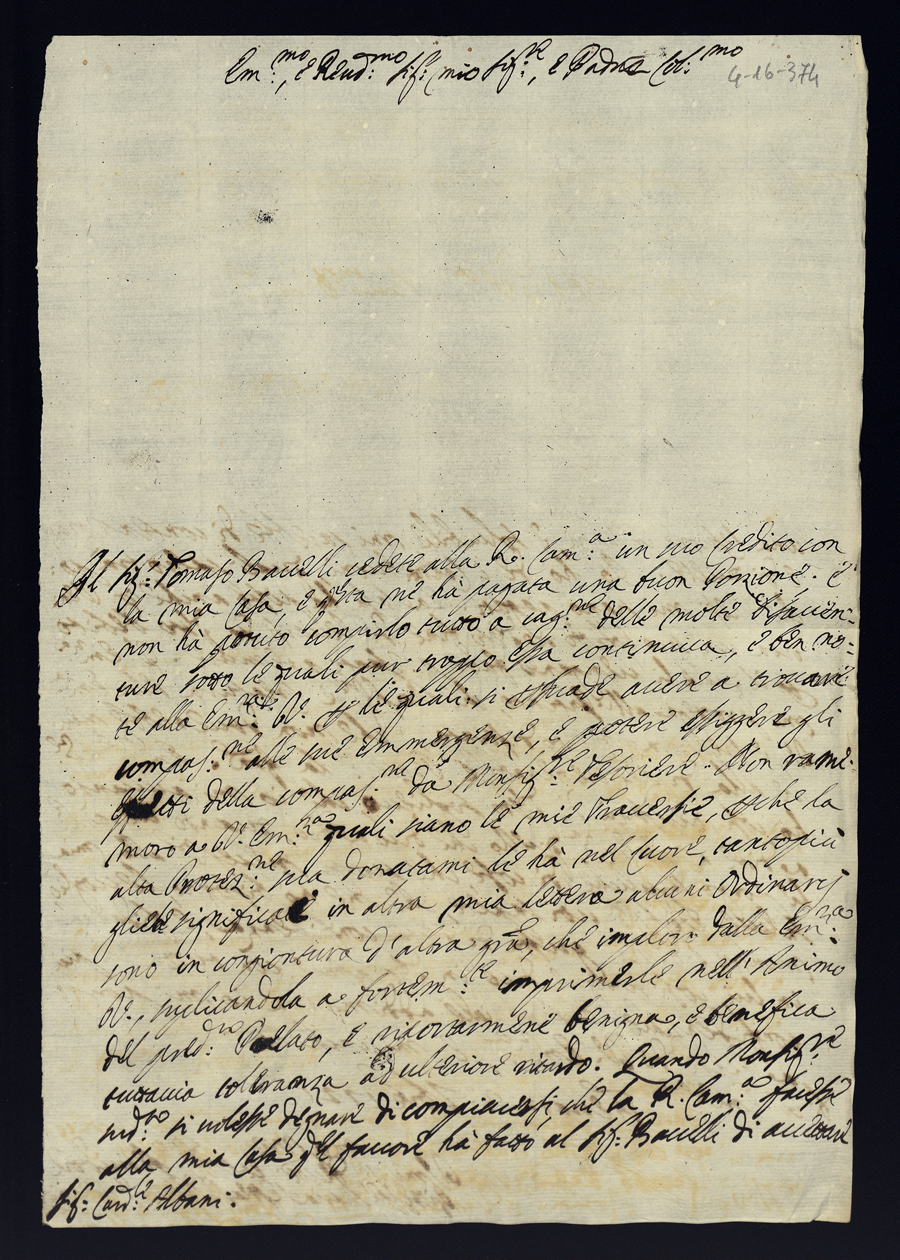 Em:mo, e Reud:mo Sig: mio Sig:re, e Padne Col:mo
4-16-374
Il Sig: Tomaso Bacelli cedete alla R. Cam:a un suo Credito con
la mia Casa, e qsta ne hà pagata una buon Porzione. e
non hà potuto compirlo tutto a cag:ne delle molte disauen=
ture sotto le quali pur troppo essa continua, e ben no=
te alla Em:za V.
compas:ne alle sue emmergenze, e potere esiggere gli
della compas:ne da Monsig:re Tesoriere. Non rame=
moro a V. Em:za quali siano le mie Trauersie, che la
alta Protez:ne sua donatami le hà nel Cuore, tantopiù
significai in altra mia lettera alcuni Ordinarij
sono in congiontura d'altra gra, che imploro dalla Em:za
V., suplicandola a fortem:te imprimerle nell'Animo
del pred:to Prelato, e riportarmene benigna, e benefica
tuttauia toleranza ad ulteriore ritardo. Quando Monsig:re
sud:to si uolesse degnare di compiacersi, che la R. Cam:a facesse
alla mia Casa qll fauore hà fatto al Sig: Bacelli di accettare
Sig: Card:le Albani.